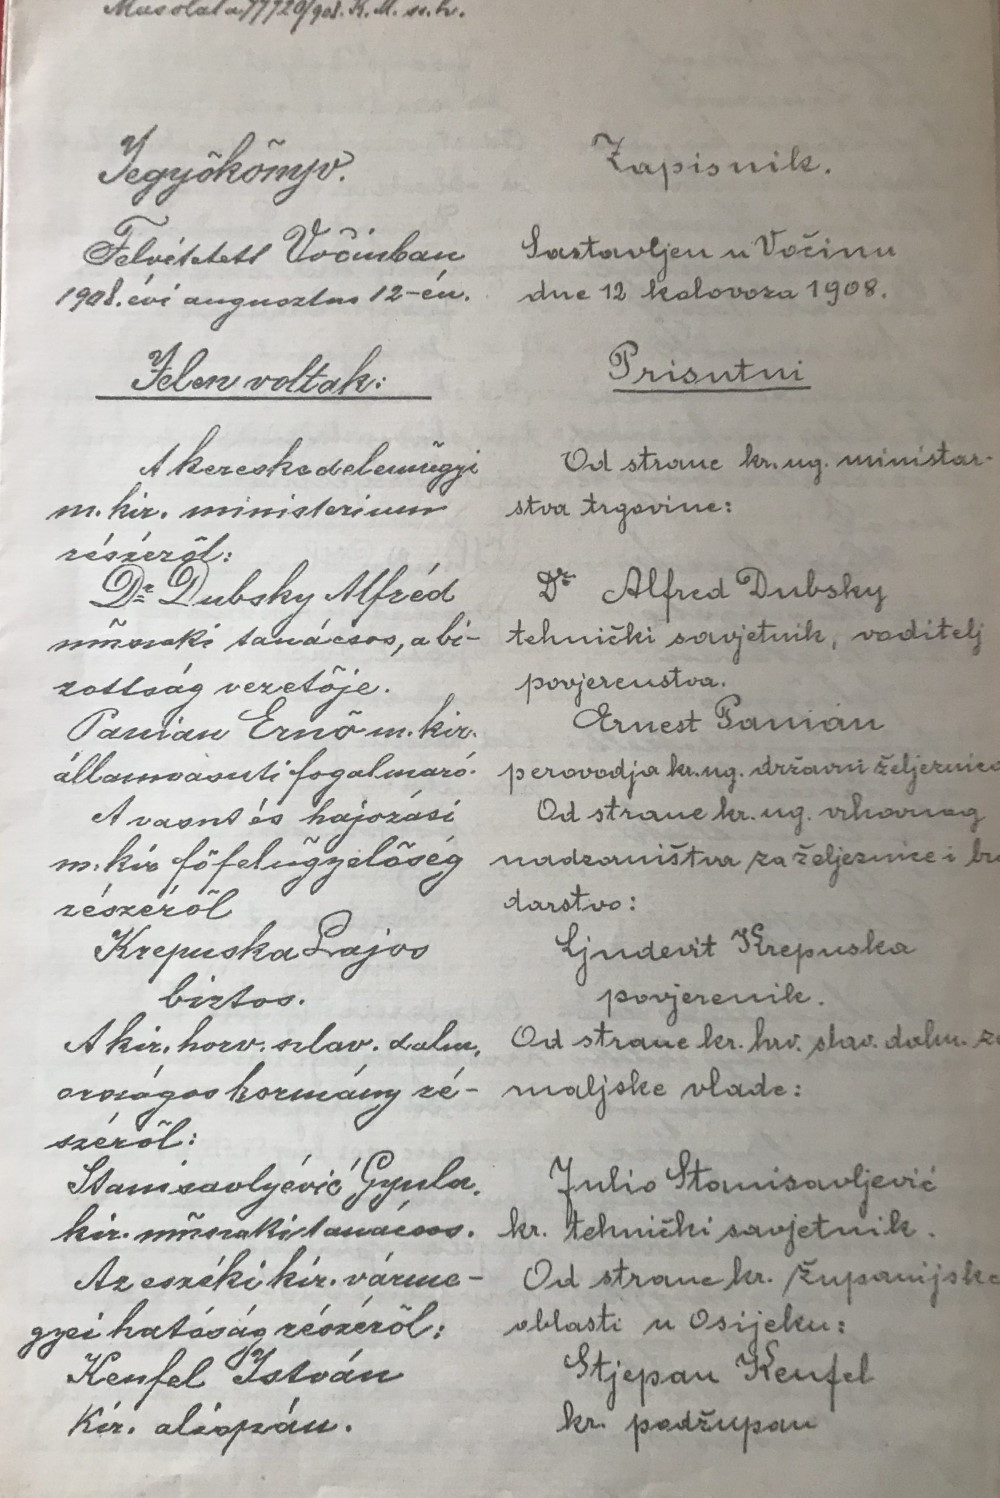 Másolat a 77720/908. K. M. sz. h.
Jegyőkőnyv.
Felvétetett Vočinban
1908. évi augusztus 12-én.
Jelen voltak:
A kereskedelemügyi
m. kir. ministerium
részéről:
Dr. Dubsky Alfréd
műszaki tanácsos, a bi-
zottság vezetője.
Panian Ernő m. kir.
államvasuti fogalmazó.
A vasut és hajozási
m. kir főfelügyelőség
részéről
Krepuska Lajos
biztos.
A kir. horv. szlav. dalm.
országos kormány ré-
széről:
Stanisavljević Gyula.
kir. műszaki tanácsos.
Az eszéki kir. várme-
gyei hatóság részéről:
Kenfel István
Kir. alispán.
Zapisnik.
Sastavljen u Vočinu
dne 12 kolovoza 1908.
Prisutni
Od strane kr. ug. ministar-
stva trgovine:
Dr Alfred Dubsky
tehnički savjetnik, voditelj
povjerenstva.
Ernest Panian
perovodja kr. ug. državni željeznica
Od strane kr. ug. vrhovnog
nadzorništva za željeznice i bro
darstvo:
Ljudevit Krepuska
povjerenik.
Od strane kr. hrv. slav. dalm. ze
maljske vlade:
Julio Stanisavljević
kr. tehnički savjetnik.
Od strane kr. županijske
oblasti u Osijeku:
Stjepan Kenfel
kr. podžupan